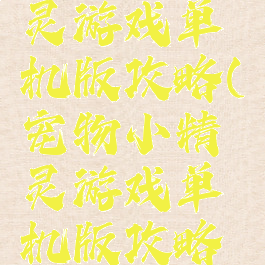 灵游戏单
机版攻略(
宠物小精
灵游戏单
机版攻略